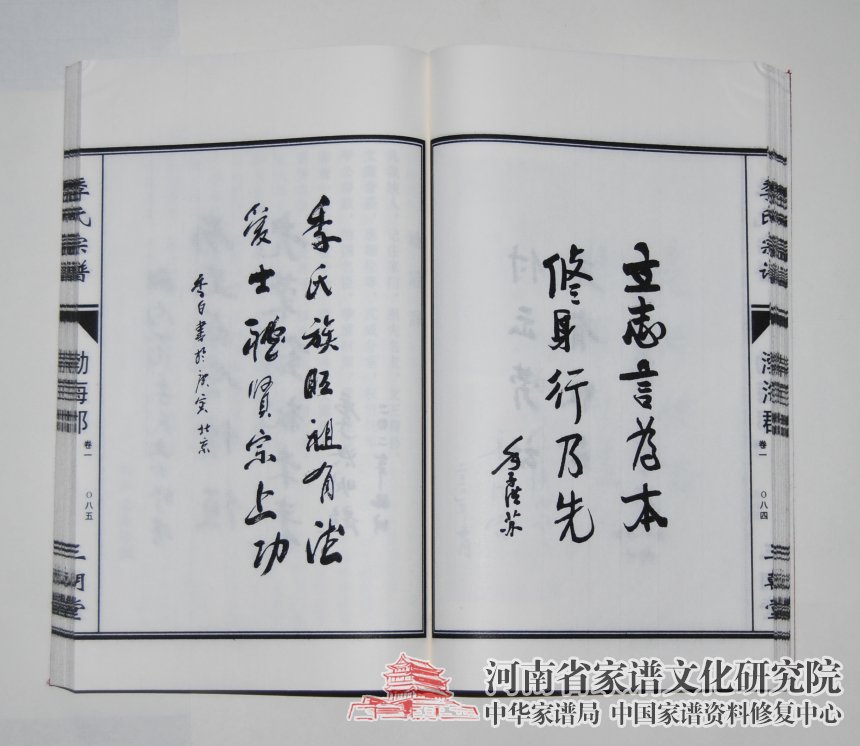 季氏宗谱
渤海郡
卷一
〇八四
三朝堂
立志言为本
修身行乃先
季氏族旺祖有
爱士禮贤宗上功
季白書於庚寅北京
季氏宗谱
渤海郡
卷一
〇八五
三朝堂
河南省家谱文化研究院
中华家谱局 中国家谱资料修复中心